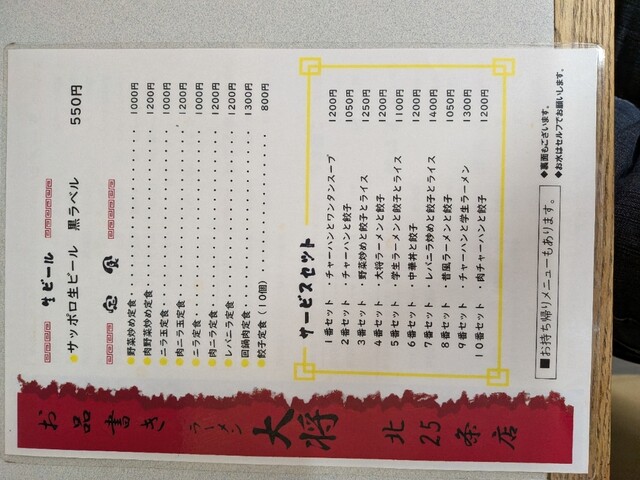 お品書き
ラーメン
大将
北25条店
生ビール
●サッポロ生ビール 黒ラベル 550円
定食
●野菜炒め定食 1000円
●肉野菜炒め定食 1200円
●ニラ玉定食 1000円
●肉ニラ玉定食 1200円
●ニラ定食 1000円
●肉ニラ定食 1200円
●レバニラ定食 1200円
●回鍋肉定食 1300円
●餃子定食(10個) 800円
サービスセット
1番セット ・チャーハンとワンタンスープ 1200円
2番セット ・チャーハンと餃子 1050円
3番セット ・野菜炒めと餃子とライス 1250円
4番セット ・大将ラーメンと餃子 1200円
5番セット ・学生ラーメンと餃子とライス 1100円
6番セット ・中華丼と餃子 1200円
7番セット ・レバニラ炒めと餃子とライス 1400円
8番セット ・昔風ラーメンと餃子 1050円
9番セット ・チャーハンと学生ラーメン 1300円
10番セット ・肉チャーハンと餃子 1200円
■お持ち帰りメニューもあります。
◆裏面もございます。
◆お水はセルフでお願いします。